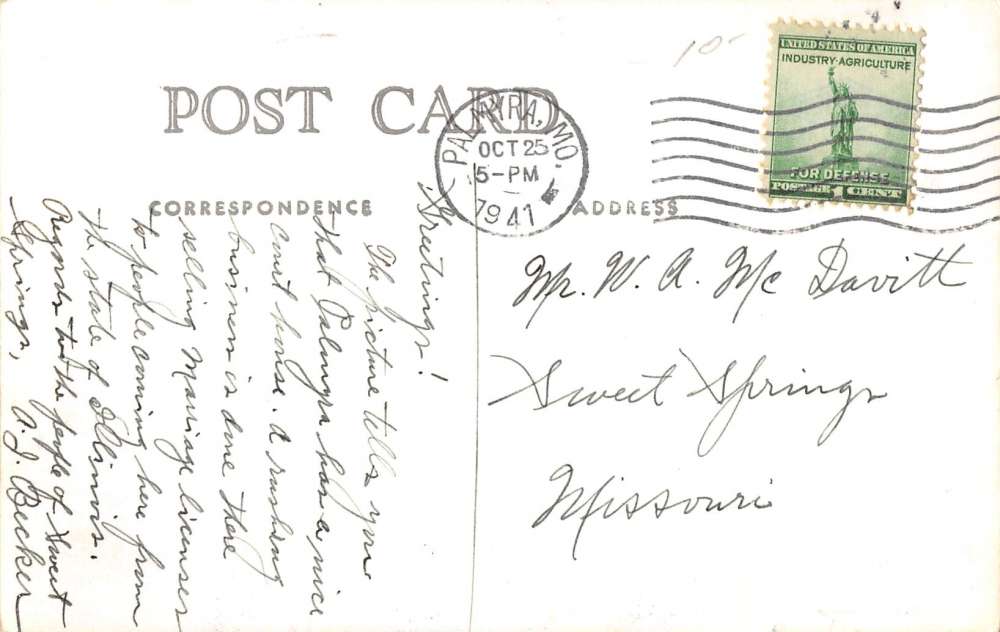 10-
UNITED STATES OF AMERICA
INDUSTRY·AGRICULTURE
FOR DEFENSE
POSTAGE 1 CENT
POST CARD
PALMYRA, MO.
OCT 25
5-PM
1941
CORRESPONDENCE
ADDRESS
Greetings!
The picture tells you
that Palmyra has a nice
court house. A rushing
business is done there
selling marriage licenses
to people coming here from
the state of Illinois.
Regards to the people of Sweet
Springs,
A. J. Becker
Mr. W. A. Mc Davitt
Sweet Springs
Missouri